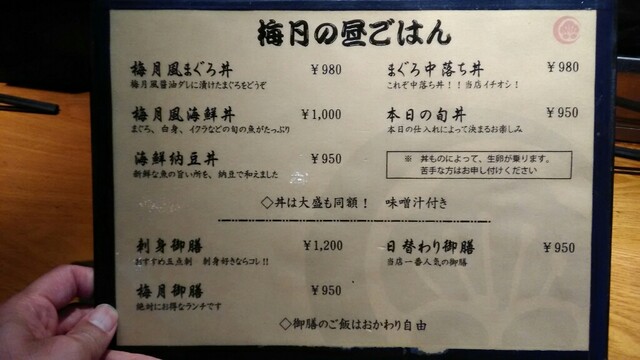 梅月の昼ごはん
梅月風まぐろ丼 ￥980
梅月風醤油ダレに漬けたまぐろをどうぞ
梅月風海鮮丼 ￥1,000
まぐろ、白身、イクラなどの旬の魚がたっぷり
海鮮納豆丼 ￥950
新鮮な魚の旨い所を、納豆で和えました
まぐろ中落ち丼 ￥980
これぞ中落ち丼！！当店イチオシ！
本日の旬丼 ￥950
本日の仕入れによって決まるお楽しみ
※ 丼ものによって、生卵が乗ります。
苦手な方はお申し付けください
◇丼は大盛も同額！ 味噌汁付き
刺身御膳 ￥1,200
おすすめ五点刺 刺身好きならコレ!!
梅月御膳 ￥950
絶対にお得なランチです
日替わり御膳 ￥950
当店一番人気の御膳
◇御膳のご飯はおかわり自由